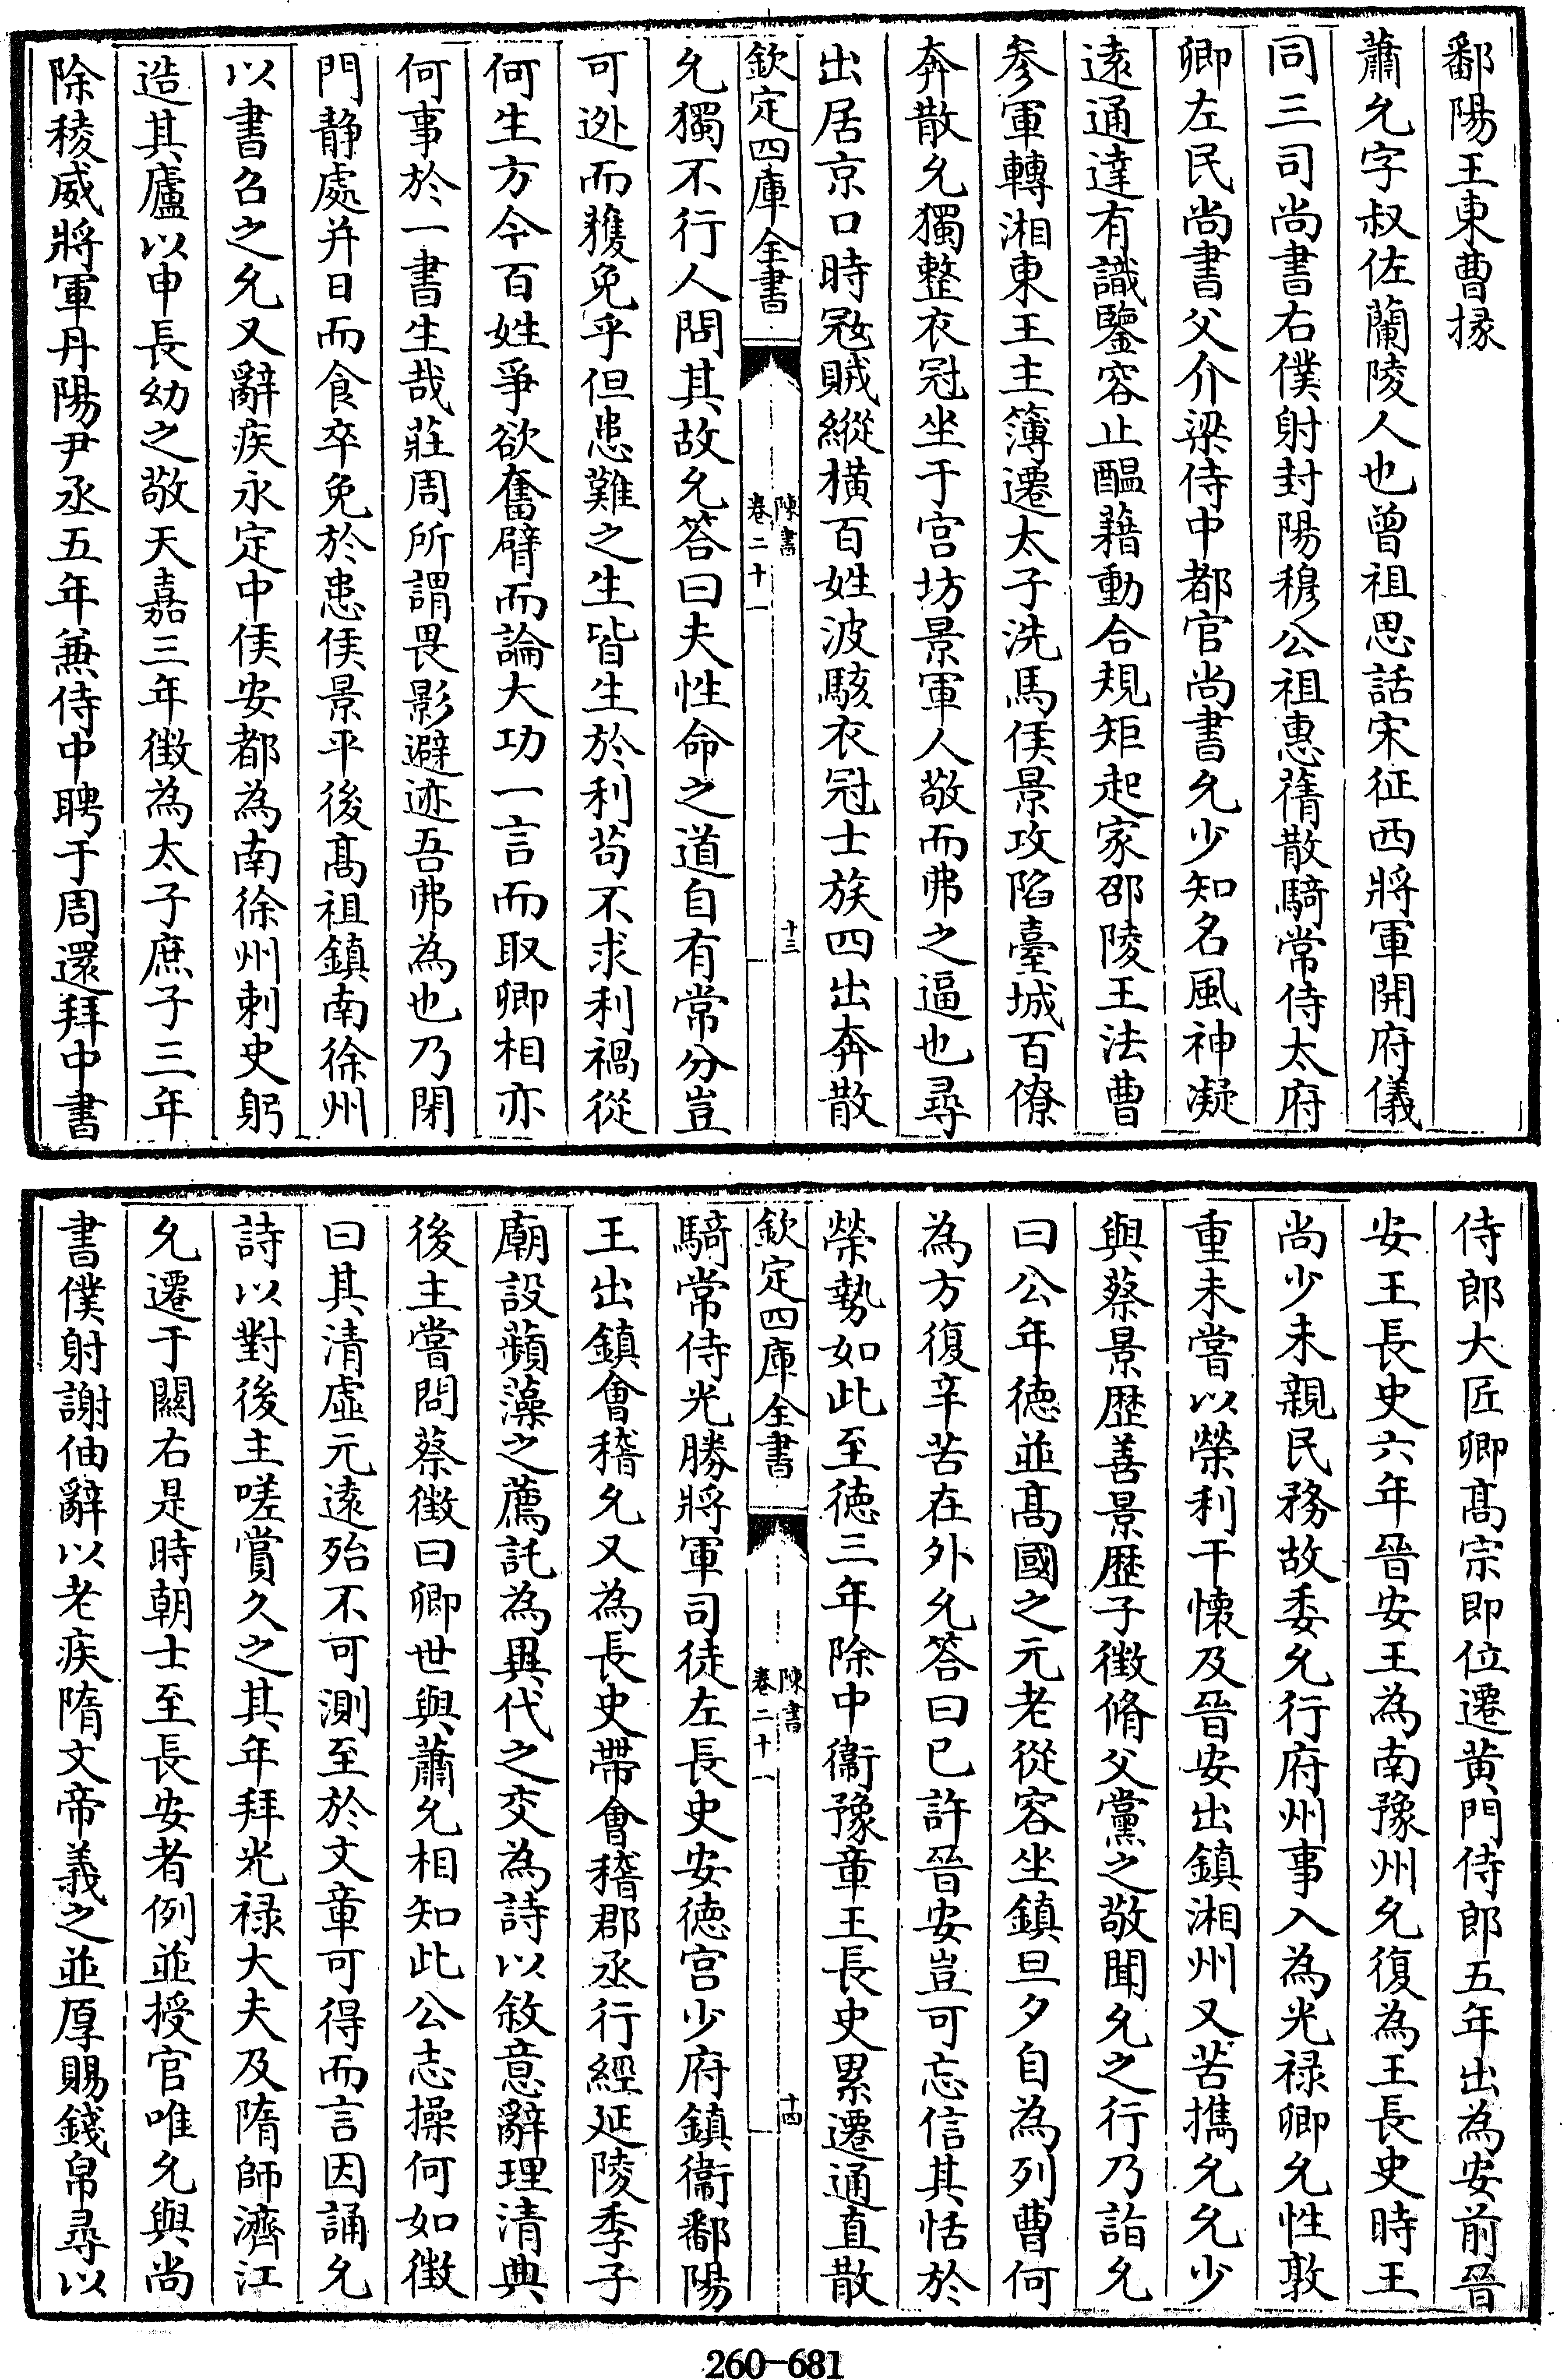 鄱陽王東曹掾
蕭允字叔佐蘭陵人也曾祖思話宋征西將軍開府儀
同三司尚書右僕射封陽穆公祖惠蒨散騎常侍太府
卿左民尚書父介梁侍中都官尚書允少知名風神凝
逺通達有識鑒容止醖藉動合規矩起家邵陵王法曹
參軍轉湘東王主簿遷太子洗馬侯景攻陷臺城百僚
奔散允獨整衣冠坐于宫坊景軍人敬而弗之逼也尋
出居京口時寇賊縱橫百姓波駭衣冠士族四出奔散
欽定四庫全書
陳書
卷二十一
十三
允獨不行人問其故允答曰夫性命之道自有常分豈
可逃而獲免乎但患難之生皆生於利苟不求利禍從
何生方今百姓爭欲奮臂而論大功一言而取卿相亦
何事於一書生哉莊周所謂畏影避迹吾弗為也乃閉
門靜處并日而食卒免於患侯景平後髙祖鎮南徐州
以書召之允又辭疾永定中侯安都為南徐州刺史躬
造其廬以申長幼之敬天嘉三年徴為太子庶子三年
除稜威將軍丹陽尹丞五年兼侍中聘于周還拜中書
侍郎大匠卿髙宗即位遷黄門侍郎五年出為安前晉
安王長史六年晉安王為南豫州允復為王長史時王
尚少未親民務故委允行府州事入為光禄卿允性敦
重未嘗以榮利干懐及晉安出鎮湘州又苦攜允允少
與蔡景歴善景歴子徴脩父黨之敬聞允之行乃詣允
曰公年徳並髙國之元老從容坐鎮旦夕自為列曹何
為方復辛苦在外允答曰已許晉安豈可忘信其恬於
榮勢如此至徳三年除中衞豫章王長史累遷通直散
欽定四庫全書
陳書
卷二十一
十四
騎常侍光勝將軍司徒左長史安徳宫少府鎮衞鄱陽
王出鎮會稽允又為長史帶會稽郡丞行經延陵季子
廟設蘋藻之薦託為異代之交為詩以敘意辭理清典
後主嘗問蔡徴曰卿世與蕭允相知此公志操何如徴
曰其清虛元逺殆不可測至於文章可得而言因誦允
詩以對後主嗟賞久之其年拜光禄大夫及隋師濟江
允遷于關右是時朝士至長安者例並授官唯允與尚
書僕射謝伷辭以老疾隋文帝義之並厚賜錢帛尋以
260-681